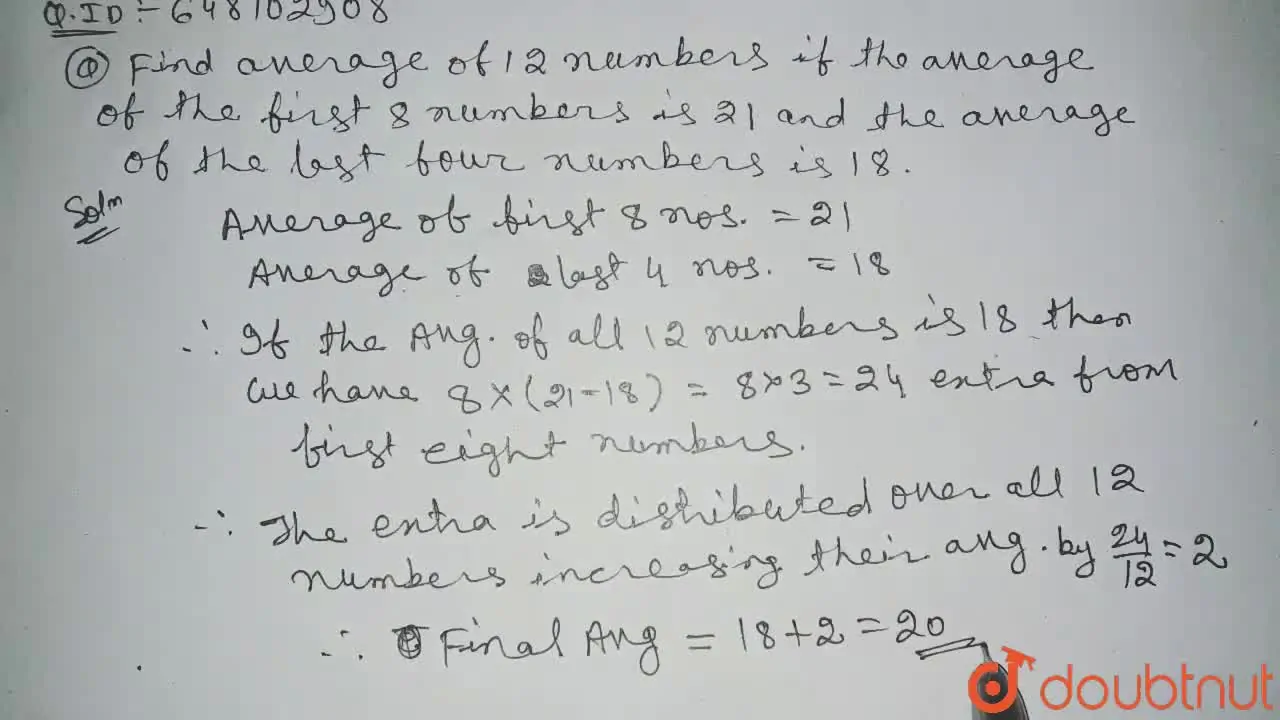 Q.ID :- 648102908
Q Find average of 12 numbers if the average
of the first 8 numbers is 21 and the average
of the last four numbers is 18.
Soln Average of first 8 nos. = 21
Average of last 4 nos. = 18
∴ If the Avg. of all 12 numbers is 18 then
we have 8×(21-18) = 8×3 = 24 extra from
first eight numbers.
∴ The extra is distributed over all 12
numbers increasing their avg. by 24/12 = 2
∴ Final Avg = 18+2 = 20
doubtnut